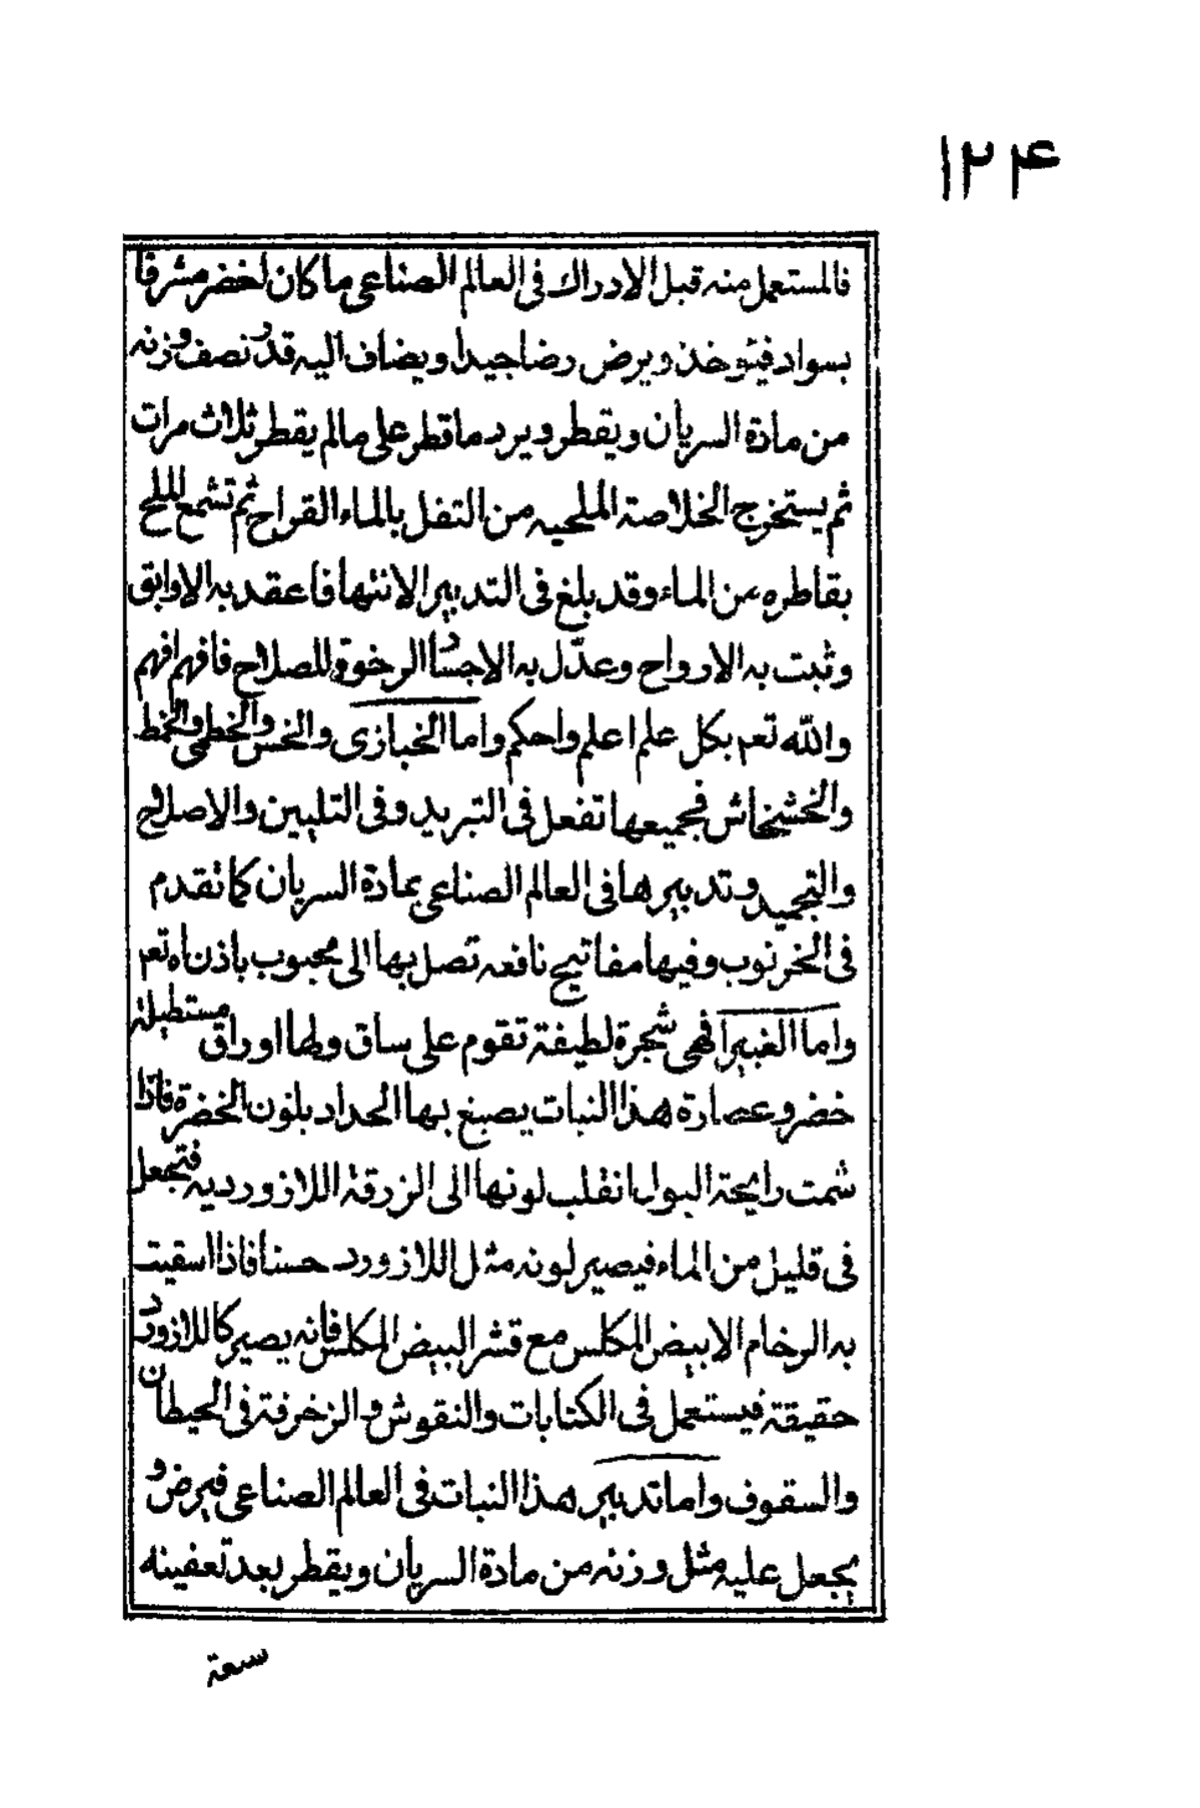 ١٢۴
فالمستعمل منه قبل الادراك فى العالم الصناعى ما كان اخضر مشرفا
بسواد فيئوخذ ويرض رضا جيدا ويضاف اليه قدر نصف وزنه
من مادة السريان ويقطر ويرد ما قطر على مالم يقطر ثلاث مرات
ثم يستخرج الخلاصة الملحيه من التفل بالماء القراح ثم تشمع الملح
بقاطره من الماء وقد بلغ فى التدبير الانتها فاعقد به الاوابق
وثبت به الارواح وعدّل به الاجساد الرخوة للصلاح فافهم افهم
والله تعم بكل علم اعلم واحكم واما الخبازى والخس والخطمى والخمط
والخشخاش فجميعها تفعل فى التبريد وفى التليين والاصلاح
والتجميد وتدبيرها فى العالم الصناعى بمادة السريان كما تقدم
فى الخرنوب وفيها مفاتيح نافعه تصل بها الى محبوب باذن اه تعم
واما الغبيرا فهى شجرة لطيفة تقوم على ساق ولها اوراق مستطيلة
خضر وعصارة هذا النبات يصبغ بها الحداد بلون الخضرة فاذا
شمت رايحة البول انقلب لونها الى الزرقة اللازورديه فتجعل
فى قليل من الماء فيصير لونه مثل اللازورد حسنا فاذا اسقيت
به الرخام الابيض المكلس مع قشر البيض المكلس فانه يصير كاللازورد
حقيقة فيستعمل فى الكتابات والنقوش والزخرفة فى الحيطان
والسقوف واما تدبير هذا النبات فى العالم الصناعى فيرض و
يجعل عليه مثل وزنه من مادة السريان ويقطر بعد تعفينه
سعة